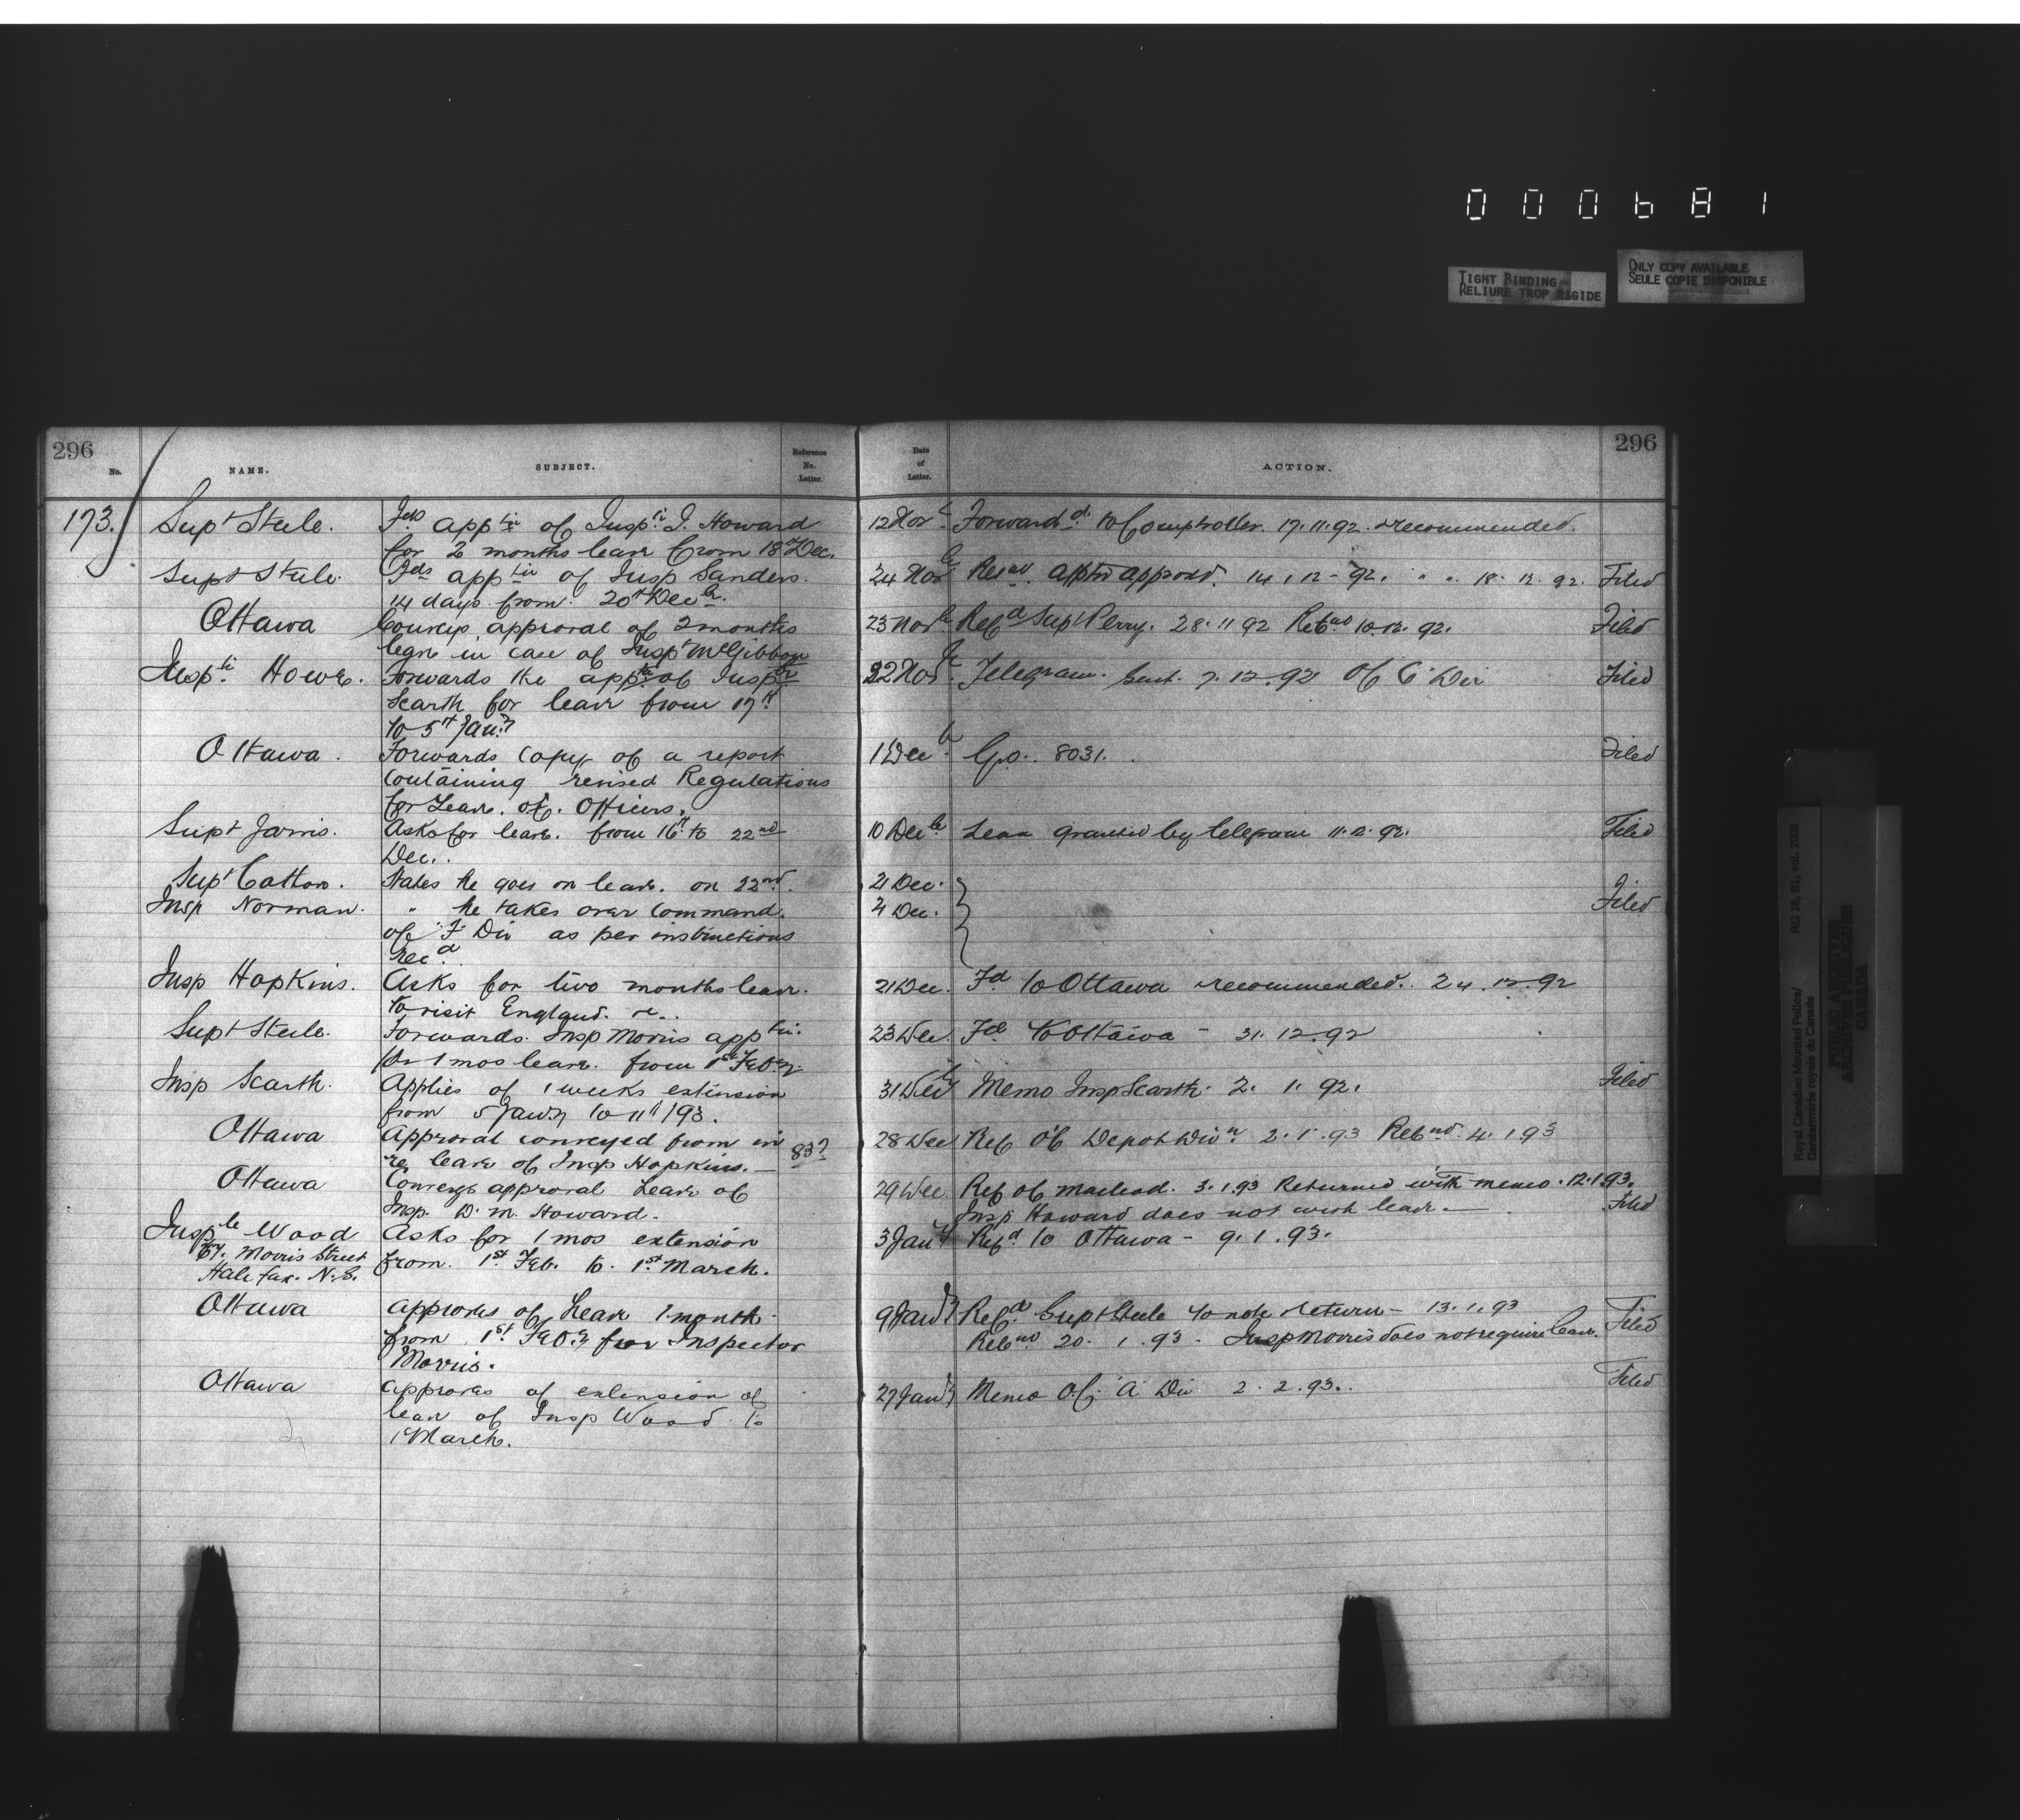 000681
TIGHT BINDING
RELIURE TROP RIGIDE
ONLY COPY AVAILABLE
SEULE COPIE DISPONIBLE
296
296
No.
NAME.
SUBJECT.
Reference
No.
Letter.
Date
of
Letter.
ACTION.
173. Supt Steele. Fds apptn of Inspr J. Howard 12 Novr Forwardd to Comptroller. 17.11.92. recommended.
for 2 months leave from 18th Dec.
Supt Steele. Fds apptn of Insp Sanders. 24 Novr Retnd approvd. 14.12-92. " " " 18.12.92. Filed
14 days from 20th Decr.
Ottawa Conveys approval of 2 months 23 Novr Refd Supt Perry. 28.11.92 Retnd 10.12.92. Filed
leave in case of Insp McGibbon
Inspr Howe. Forwards the appn of Inspr 22 Novr Telegram. Sent. 7.12.92 Of C Div Filed
Scarth for leave from 17th
to 5th Jany
Ottawa. Forwards Copy of a report 1 Decr G.O. 8031. Filed
Containing revised Regulations
for Leave. of. Officers.
Supt Jarvis. Asks for leave. from 16th to 22nd 10 Decr Leave granted by telegram 11.12.92. Filed
Dec..
Supt Cotton. States he goes on leave. on 22nd. 21 Dec.
Insp Norman. " he takes over Command. 4 Dec. Filed
of "F" Div as per instructions
Recd.
Insp Hopkins. Asks for two months leave. 21 Dec. Fd to Ottawa recommended. 24.12.92
to visit England.
Supt Steele. Forwards. Insp Morris apptn. 23 Dec. Fd to Ottawa - 31.12.92
for 1 mos leave. from 1st Feby.
Insp Scarth. Applies of 1 weeks extension 31 Decr Memo Insp Scarth. 2.1.92. Filed
from 5 Jany to 11th/93.
Ottawa Approval conveyed from in 837 28 Dec Ref Of Depot Divn 2.1.93 Retnd 4.1.93
re leave of Insp Hopkins. -
Ottawa Conveys approval Leave of 29 Dec Ref of Macleod. 3.1.93 Returned with memo. 12.1.93.
Insp. D. M. Howard. Insp Howard does not wish leave. - Filed
Inspr Wood Asks for 1 mos extension 3 Jany Refd to Ottawa - 9.1.93.
67. Morris Street from. 1st Feb. to. 1st March.
Halifax. N.S.
Ottawa approves of Leave 1 month 9 Jany Refd Supt Steele to note return - 13.1.93 Filed
from 1st Feby for Inspector Retnd 20.1.93. Insp Morris does not require leave.
Morris.
Ottawa approves of extension of 27 Jany Memo O.C. "A" Div 2.2.93.. Filed
leave of Insp Wood to
1 March.
Royal Canadian Mounted Police/
Gendarmerie royale du Canada
RG 18, B1, vol. 2008
PUBLIC ARCHIVES
ARCHIVES PUBLIQUES
CANADA